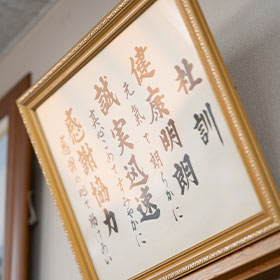 社訓
健康明朗
元気で朗らかに
誠実迅速
真心こめてすみやかに
感謝協力
感謝の心で助け合い